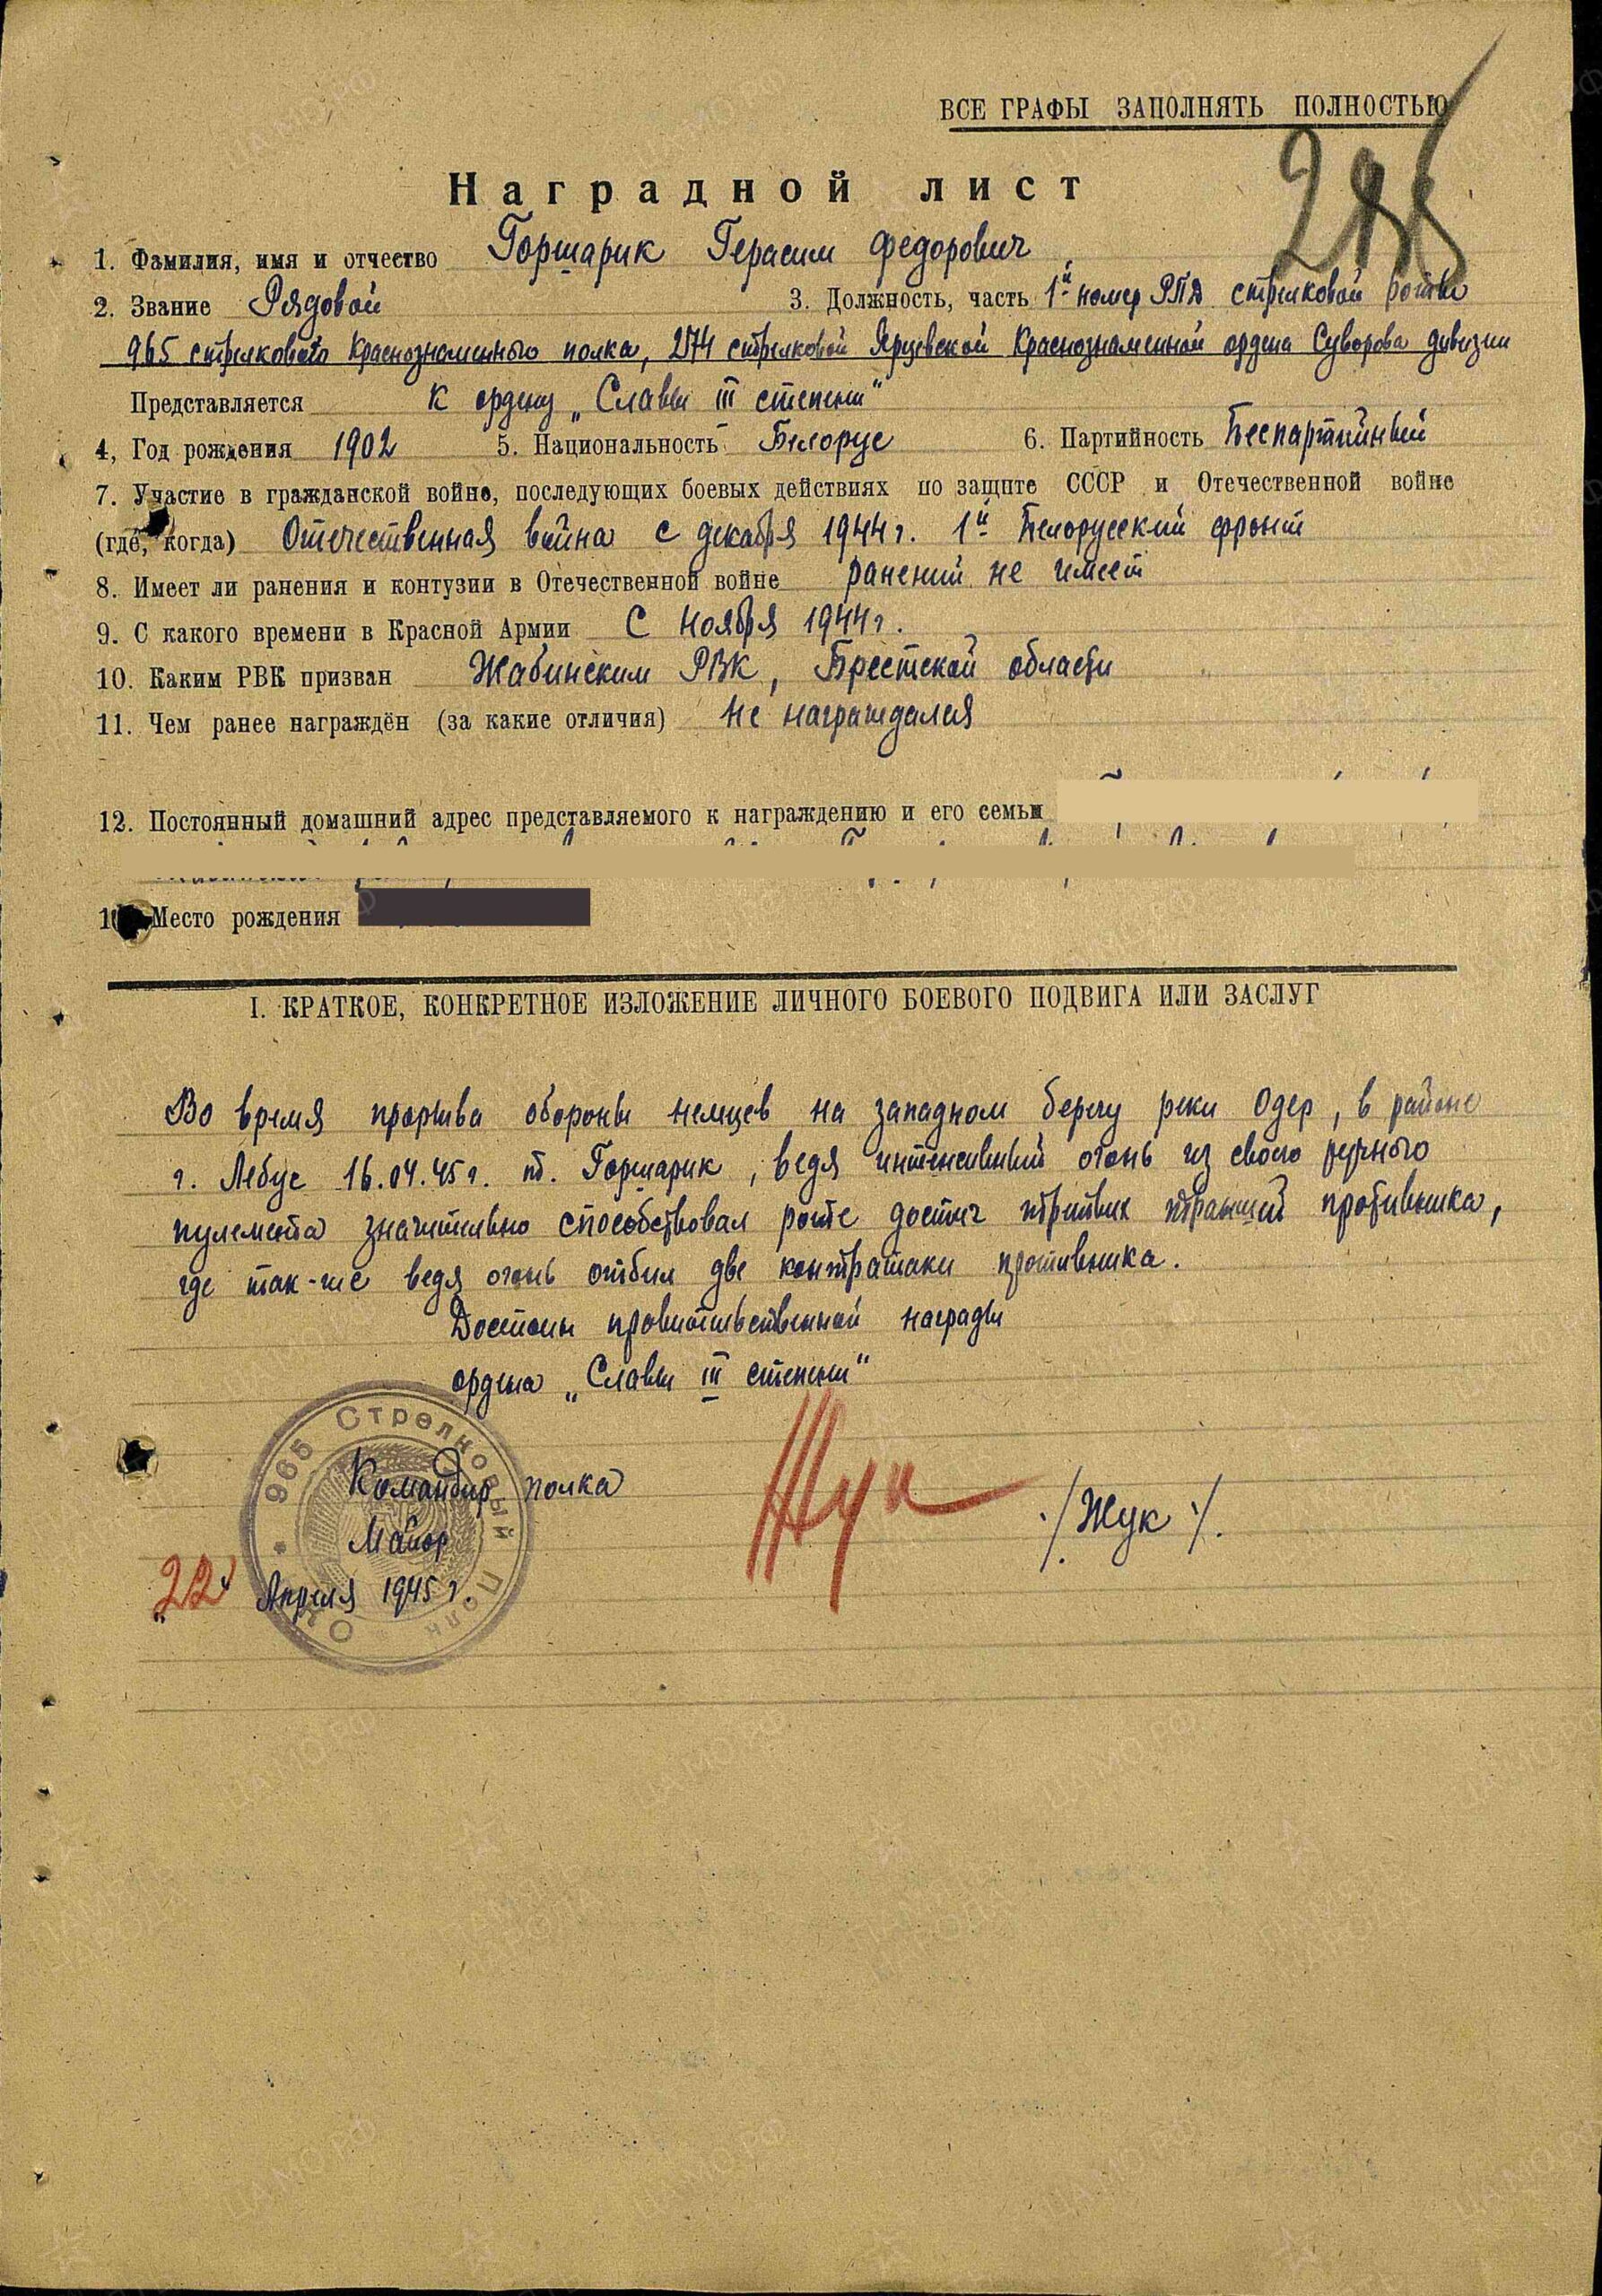 ВСЕ ГРАФЫ ЗАПОЛНЯТЬ ПОЛНОСТЬЮ
Наградной лист
1. Фамилия, имя и отчество Горшарик Герасим Федорович
2. Звание Рядовой 3. Должность, часть 1й номер РПД стрелковой роты
965 стрелкового Краснознаменного полка, 274 стрелковой Ярцевской Краснознаменной ордена Суворова дивизии
Представляется к ордену „Славы III степени"
4, Год рождения 1902 5. Национальность Белорус 6. Партийность Беспартийный
7. Участие в гражданской войне, последующих боевых действиях по защите СССР и Отечественной войне
(где, когда) Отечественная война с декабря 1944 г. 1й Белорусский фронт
8. Имеет ли ранения и контузии в Отечественной войне ранений не имеет
9. С какого времени в Красной Армии С ноября 1944 г.
10. Каким РВК призван Жабинским РВК, Брестской области
11. Чем ранее награждён (за какие отличия) не награждался
12. Постоянный домашний адрес представляемого к награждению и его семьи
Место рождения
I. КРАТКОЕ, КОНКРЕТНОЕ ИЗЛОЖЕНИЕ ЛИЧНОГО БОЕВОГО ПОДВИГА ИЛИ ЗАСЛУГ
Во время прорыва обороны немцев на западном берегу реки Одер, в районе
г. Лебус 16.04.45 г. т. Горшарик, ведя интенсивный огонь из своего ручного
пулемета значительно способствовал роте достич третьих траншей противника,
где так-же ведя огонь отбил две контратаки противника.
Достоин правительственной награды
ордена „Славы III степени"
965 Стрелковый Полк
Командир полка
Майор
Жук
/Жук/.
„22" Апреля 1945 г.
ЦАМО.РФ